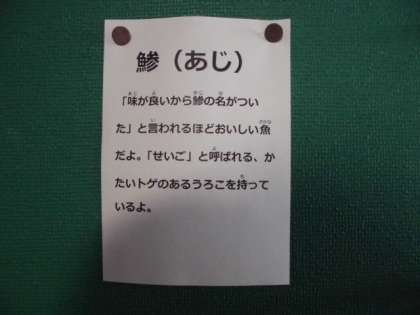 鯵（あじ）
「味が良いから鯵の名がつい
た」と言われるほどおいしい魚
だよ。「せいご」と呼ばれる、か
たいトゲのあるうろこを持って
いるよ。